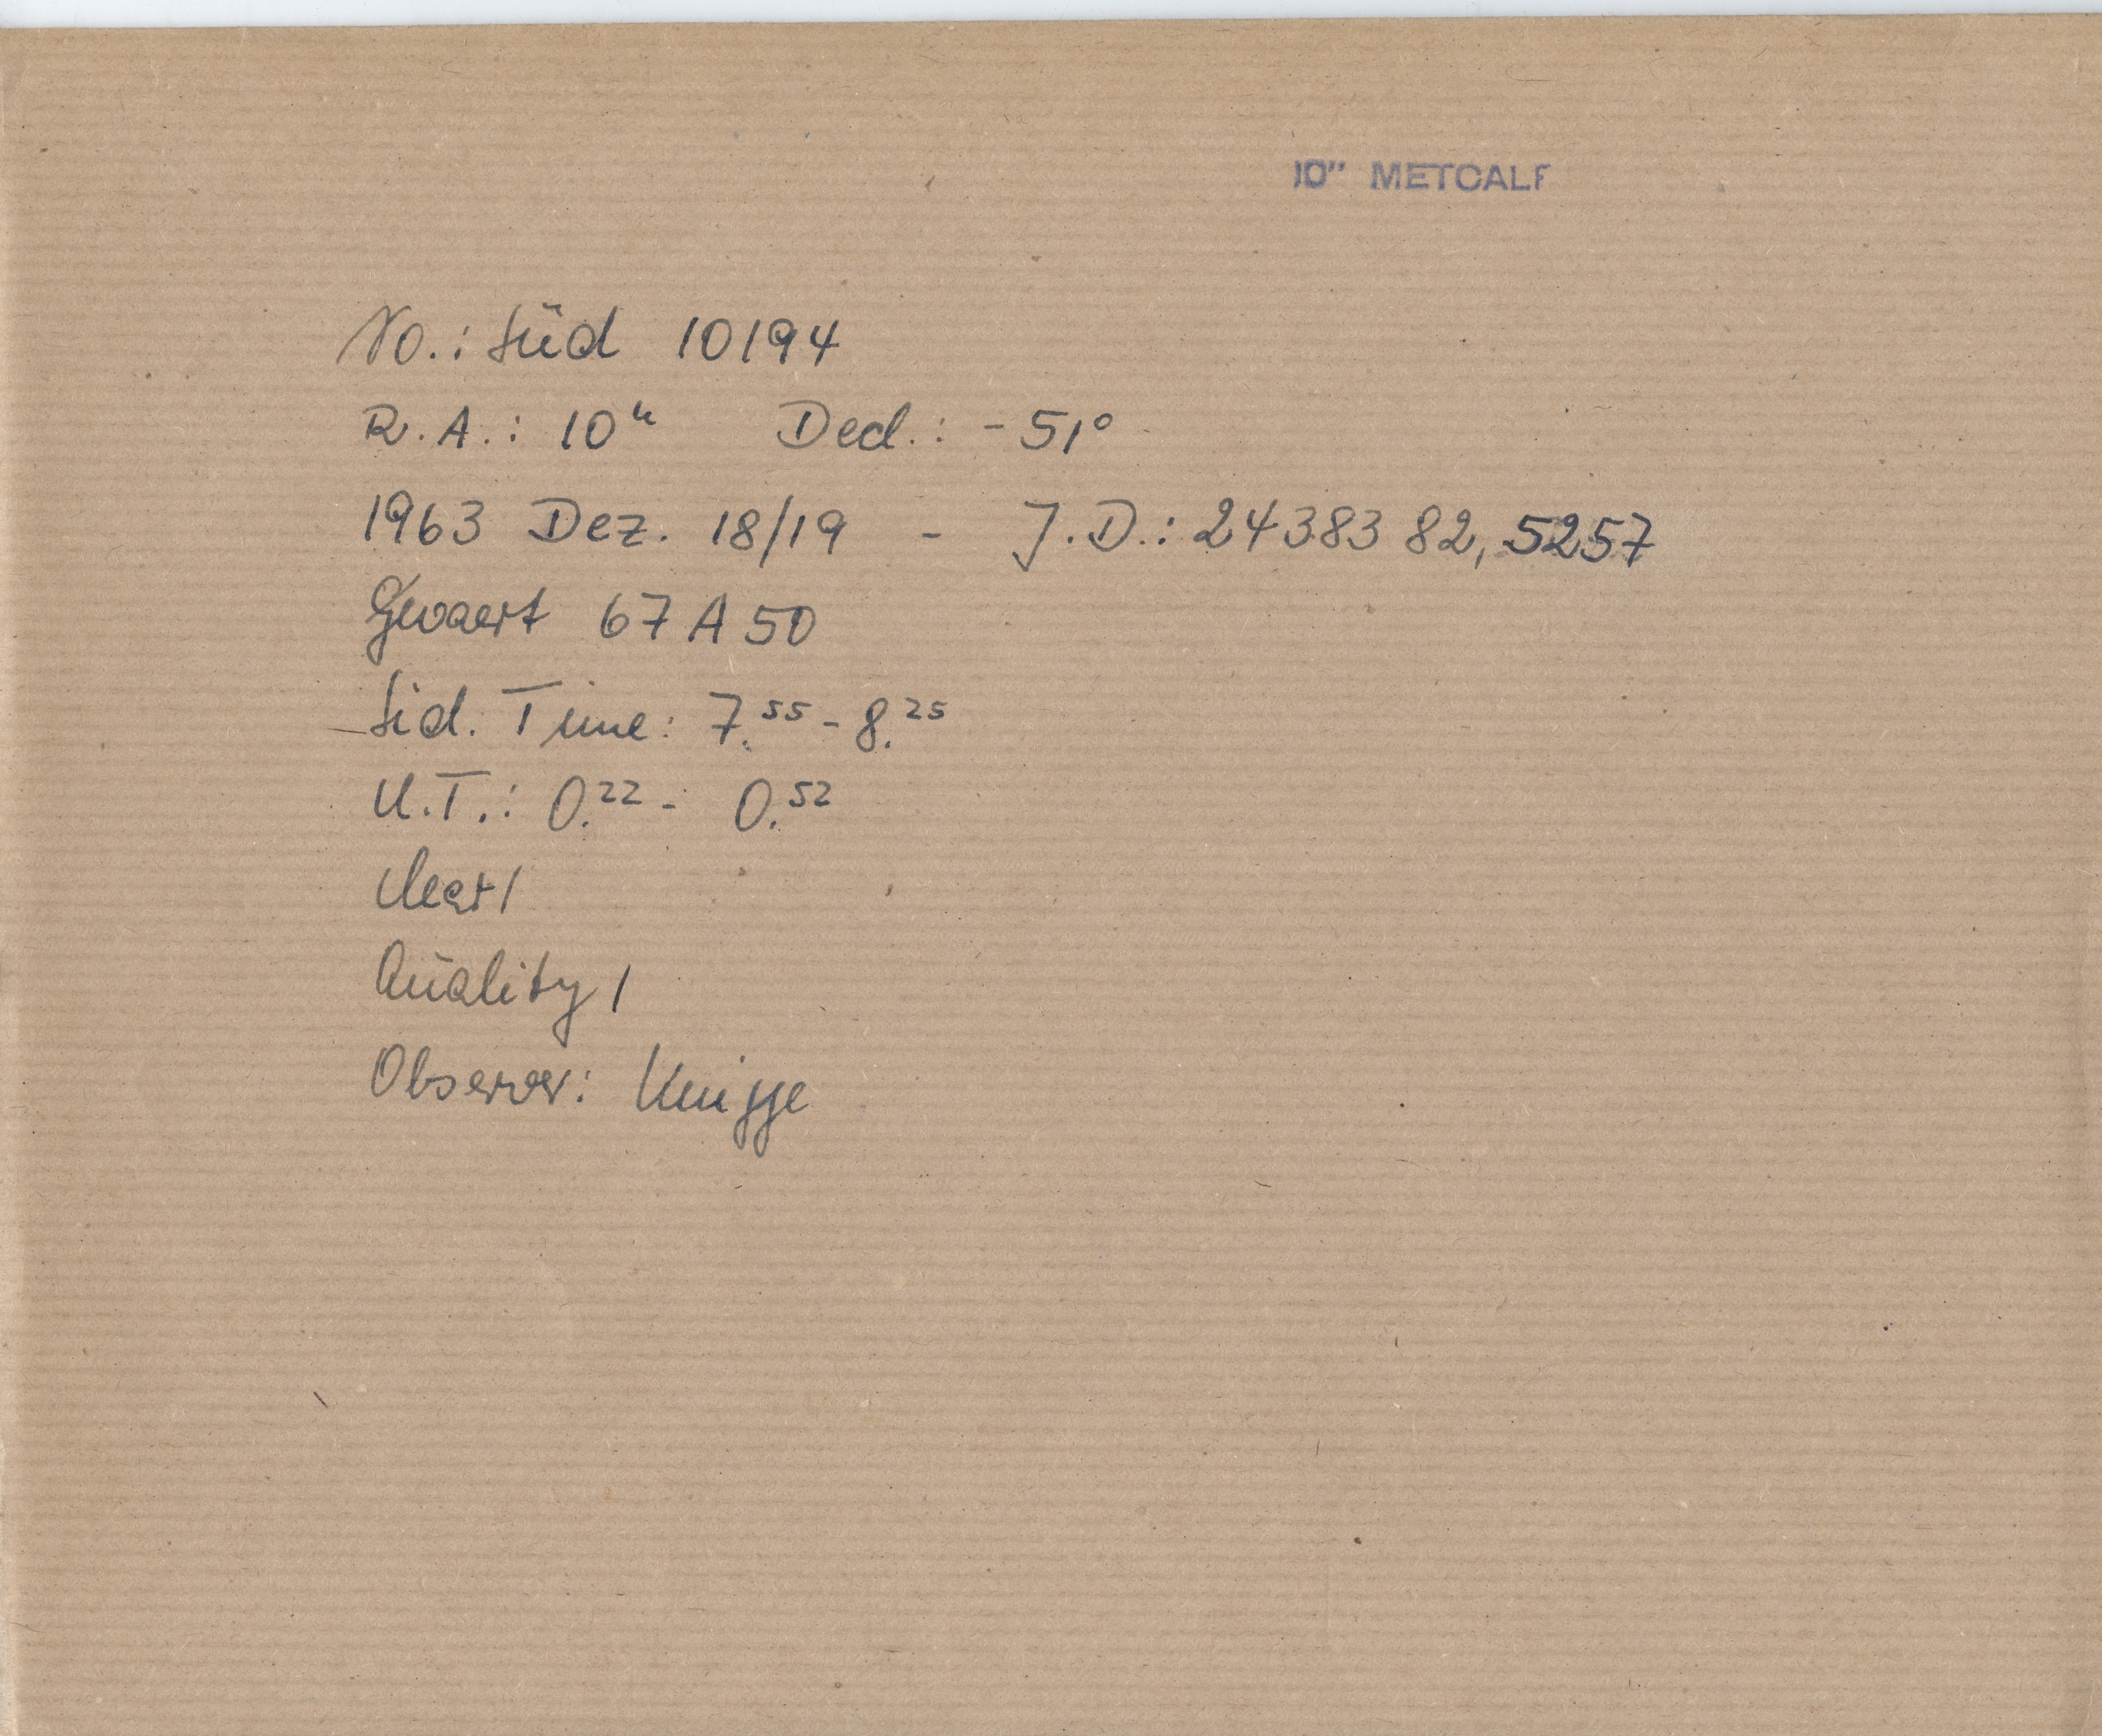 10" METCALF
No.: Süd 10194
R.A.: 10ʰ Decl.: -51°
1963 Dez. 18/19 - J.D.: 2438382,5257
Gevaert 67 A 50
Sid. Time: 7.⁵⁵ - 8.²⁵
U.T.: 0.²² - 0.⁵²
clear 1
Quality 1
Observer: Knigge